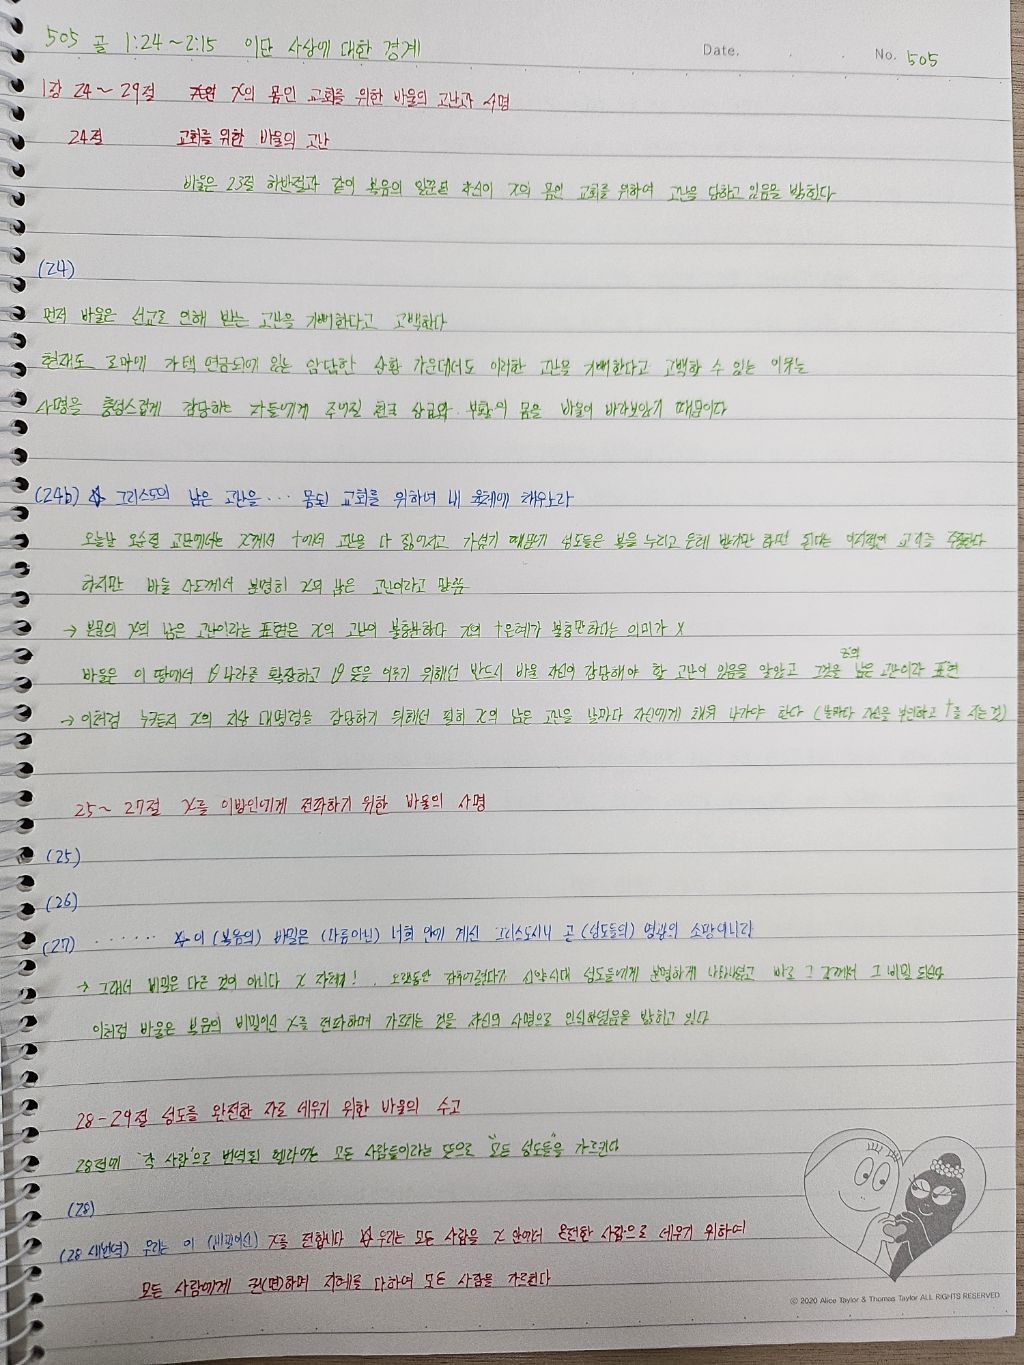 505 골 1:24~2:15 이단 사상에 대한 경계
Date.
No. 505
1장 24~29절 X의 몸인 교회를 위한 바울의 고난과 사명
24절 교회를 위한 바울의 고난
바울은 23절 하반절과 같이 복음의 일꾼된 자신이 X의 몸인 교회를 위하여 고난을 당하고 있음을 밝힌다
(24)
먼저 바울은 선교로 인해 받는 고난을 기뻐한다고 고백한다
현재도 로마에 가택 연금되어 있는 암담한 상황 가운데서도 이러한 고난을 기뻐한다고 고백할 수 있는 이유는
사명을 충성스럽게 감당하는 자들에게 주어질 천국 상급과 부활의 몸을 바울이 바라보았기 때문이다
(24b) ☆ 그리스도의 남은 고난을··· 몸된 교회를 위하여 내 육체에 채우노라
오늘날 오순절 교단에서는 X께서 †에서 고난을 다 짊어지고 가셨기 때문에 성도들은 복을 누리고 은혜 받기만 하면 된다는 이단적인 교리를 주장한다
하지만 바울 사도께서 분명히 X의 남은 고난이라고 말씀
→ 본문의 X의 남은 고난이라는 표현은 X의 고난이 불충분하다 X의 †은혜가 불충만하다는 의미가 X
바울은 이 땅에서 θ나라를 확장하고 θ뜻을 이루기 위해선 반드시 바울 자신이 감당해야 할 고난이 있음을 알았고 그것을 X의 남은 고난이라 표현
→ 이처럼 누구든지 X의 지상 대명령을 감당하기 위해선 필히 X의 남은 고난을 날마다 자신에게 채워 나가야 한다 (날마다 자신을 부인하고 †를 지는 것)
25~27절 X를 이방인에게 전파하기 위한 바울의 사명
(25)
(26)
(27) ······· ☆ 이 (복음의) 비밀은 (다름아닌) 너희 안에 계신 그리스도시니 곧 (성도들의) 영광의 소망이니라
→ 그래서 비밀은 다른 것이 아니다 X 자체! . 오랫동안 감추어졌다가 신약시대 성도들에게 분명하게 나타내셨고 바로 그 X께서 그 비밀 되신다
이처럼 바울은 복음의 비밀이신 X를 전파하며 가르치는 것을 자신의 사명으로 인식하였음을 밝히고 있다
28-29절 성도를 완전한 자로 세우기 위한 바울의 수고
28절에 '각 사람'으로 번역된 헬라어는 모든 사람들이라는 뜻으로 "모든 성도들"을 가르킨다
(28)
(28 새번역) 우리는 이 (비밀이신) X를 전합니다 ☆우리는 모든 사람을 X 안에서 온전한 사람으로 세우기 위하여
모든 사람에게 권(면)하며 지혜를 다하여 모든 사람을 가르친다
© 2020 Alice Taylor & Thomas Taylor ALL RIGHTS RESERVED